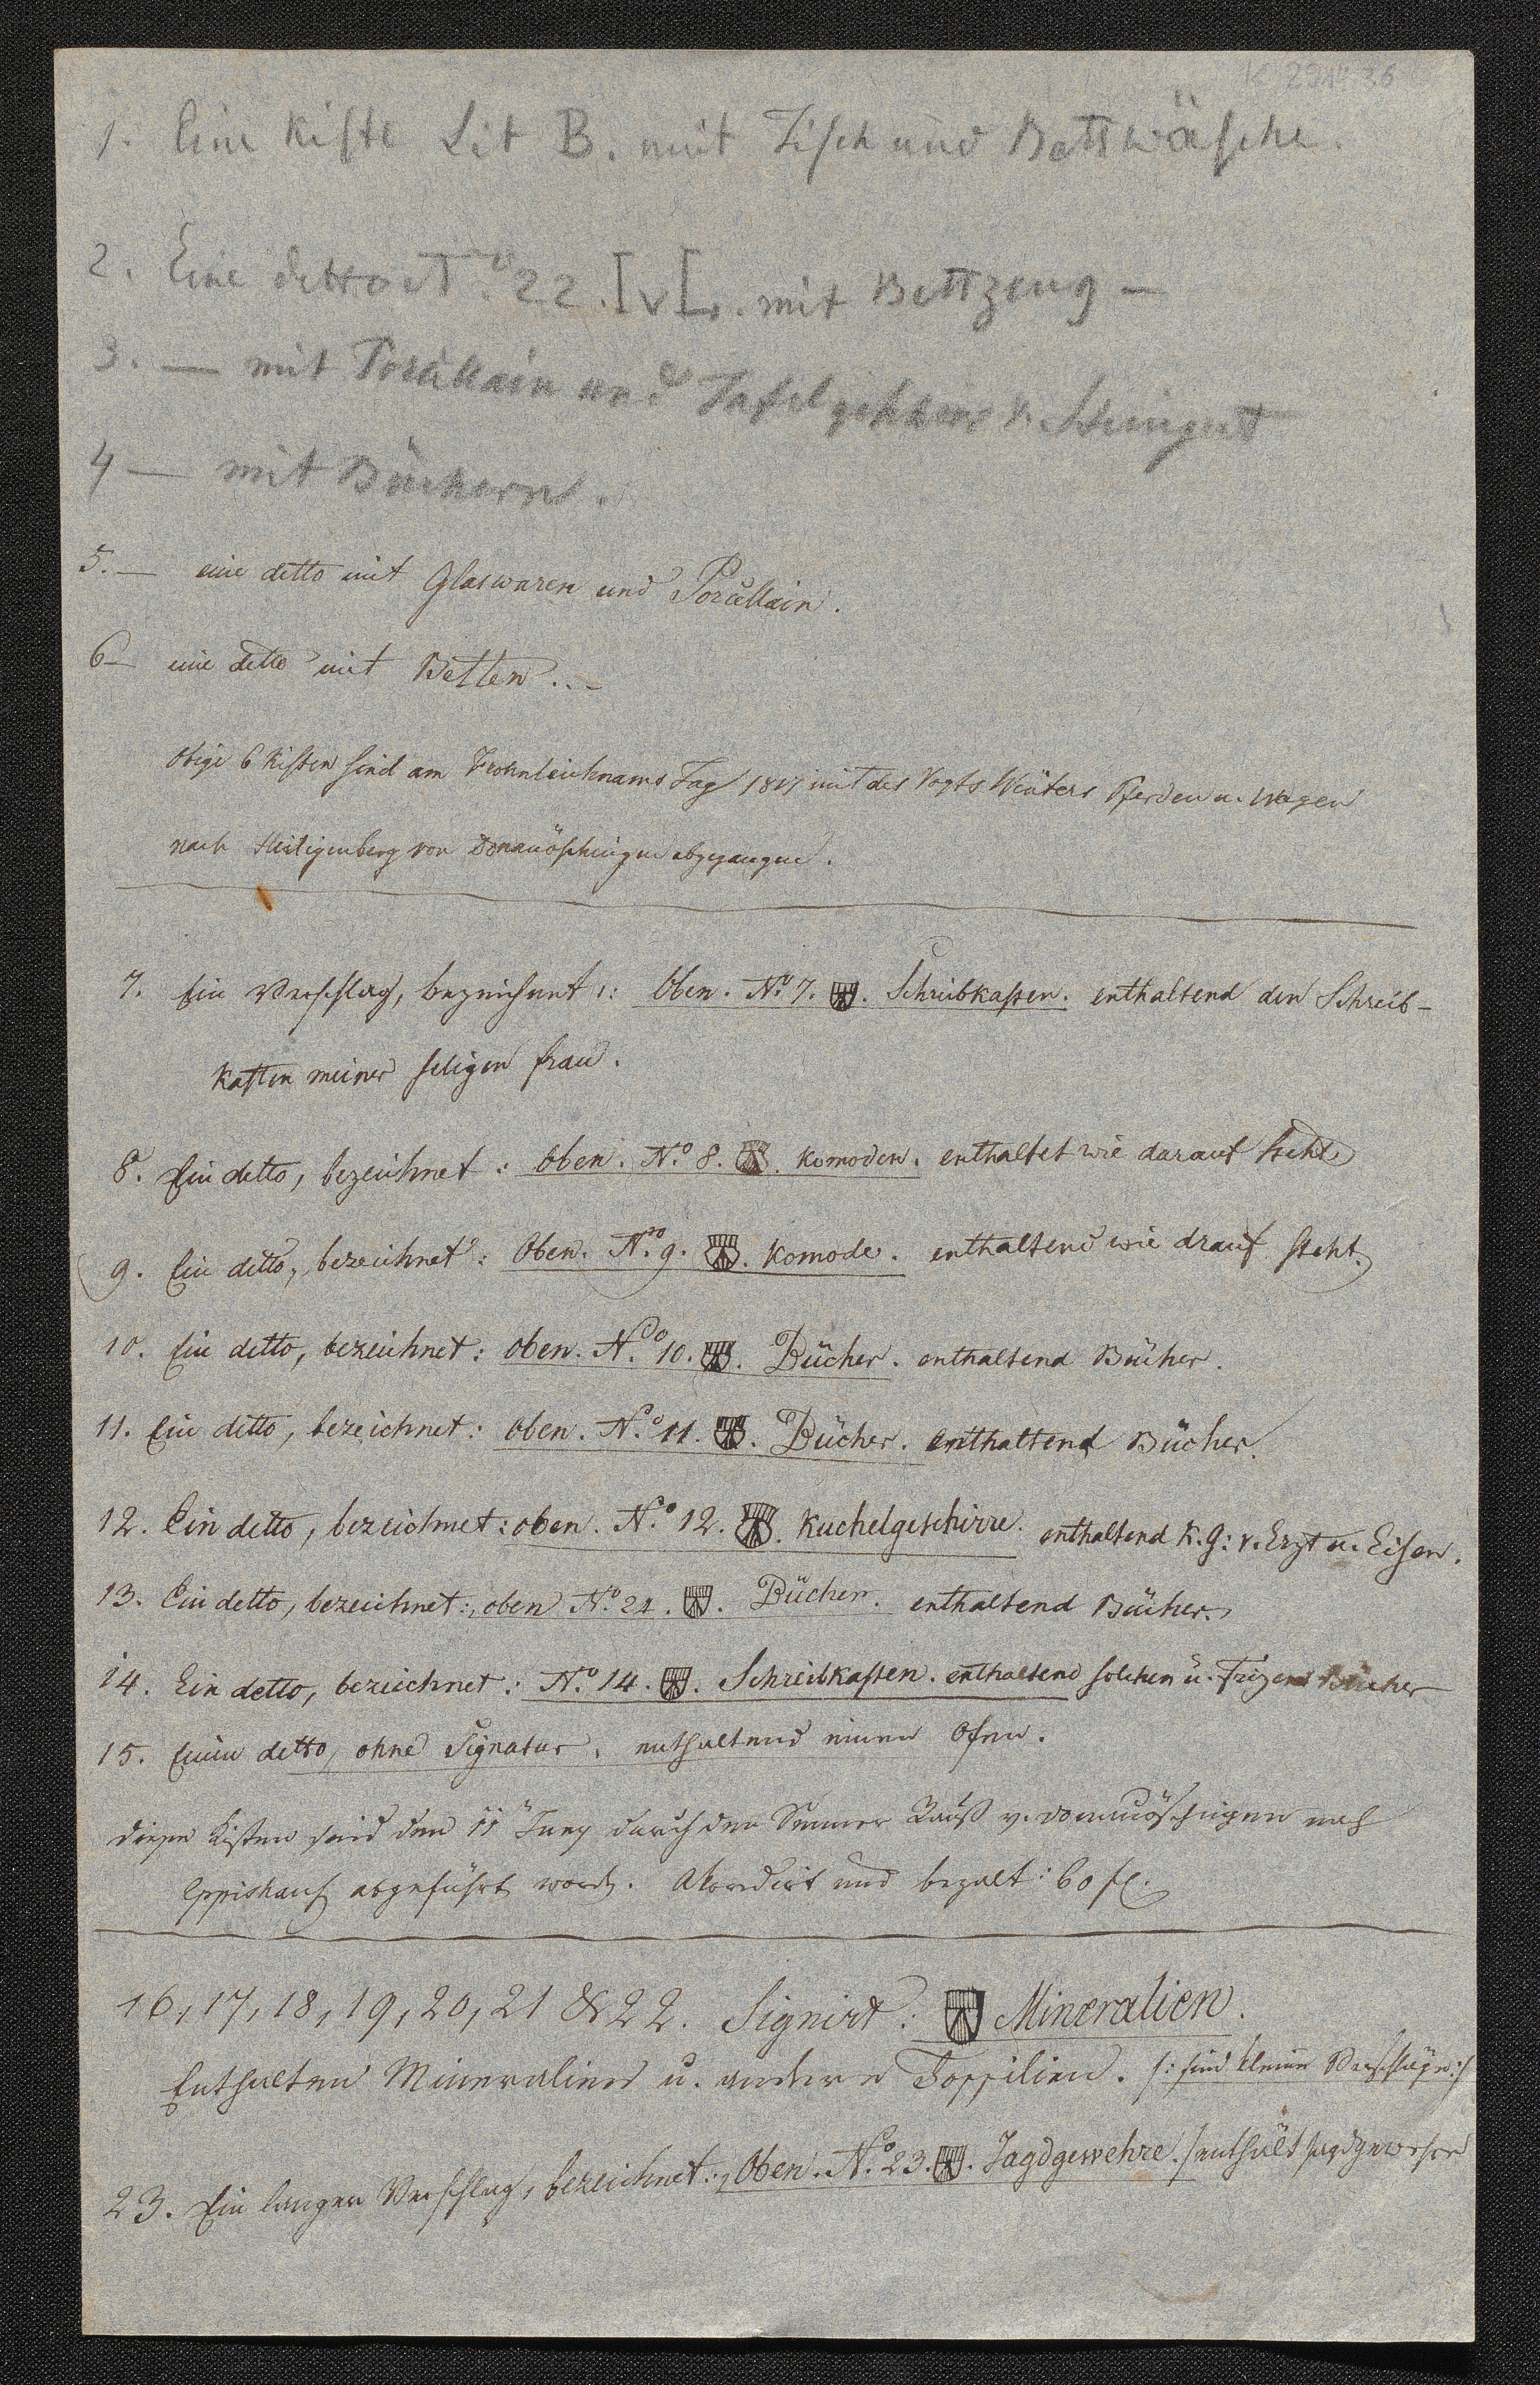 1. Eine Kiste Lit B. mit Tisch und Bettwäsche.
2. Eine detto No 22. IvL. mit Bettzeug —
3. — mit Porcellain und Tafelgeschirr v. Steingut
4 — mit Büchern.
5. — eine detto mit Glaswaren und Porcellain.
6 — eine detto mit Betten. —
Obige 6 Kisten sind am Frohnleichnams Tag 1817 mit des Vogts Pferden u. Wagen
nach Heiligenberg von Donauöschingen abgegangen.
7. Ein Verschlag, bezeichnet: Oben. No 7. Schreibkasten. enthaltend den Schreib-
kasten meiner seligen Frau.
8. Ein detto, bezeichnet: Oben. No. 8. Komoden. enthaltet wie darauf steht
9. Ein detto, bezeichnet: Oben. No. 9. Komode. enthaltend wie drauf steht.
10. Ein detto, bezeichnet: oben. No. 10. Bücher. enthaltend Bücher.
11. Ein detto, bezeichnet: oben. No. 11. Bücher. enthaltend Bücher.
12. Ein detto, bezeichnet: oben. No. 12. Kuchelgeschirre. enthaltend K. G: v. Erzt u. Eisen.
13. Ein detto, bezeichnet: oben No. 24. Bücher. enthaltend Bücher.
14. Ein detto, bezeichnet: No. 14. Schreibkasten. enthaltend solchen u. Bücher
15. Einen detto, ohne Signatur, enthaltend einen Ofen.
Diese Kisten sind den 11 Juny durch den v. Donauöschingen nach
Eppishaus abgeführt word. Akordirt und bezalt: 60 fl.
16, 17, 18, 19, 20, 21 & 22. Signirt: Mineralien.
Enthalten Mineralien u. andere Fossilien. /: sind kleine Verschläge :/
23. Ein langer Verschlag, bezeichnet: Oben. No. 23. Jagdgewehre. enthält Jagdgewehre